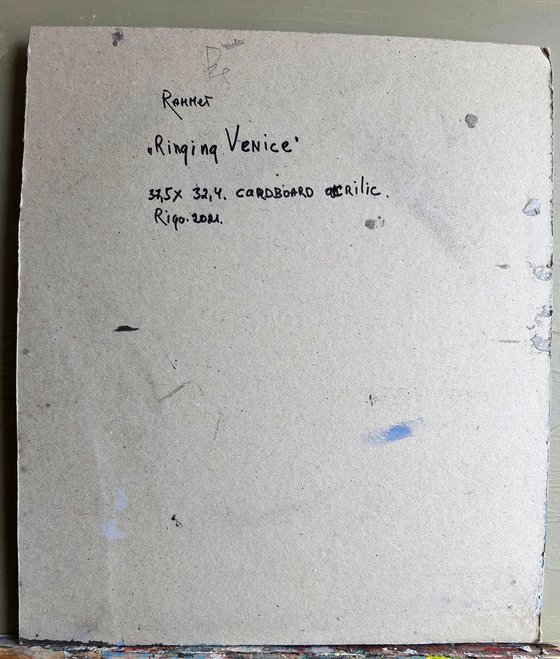 Rahmet
„Ringing Venice"
37,5 x 32,4. CARDBOARD acrilic.
Riga. 2021.